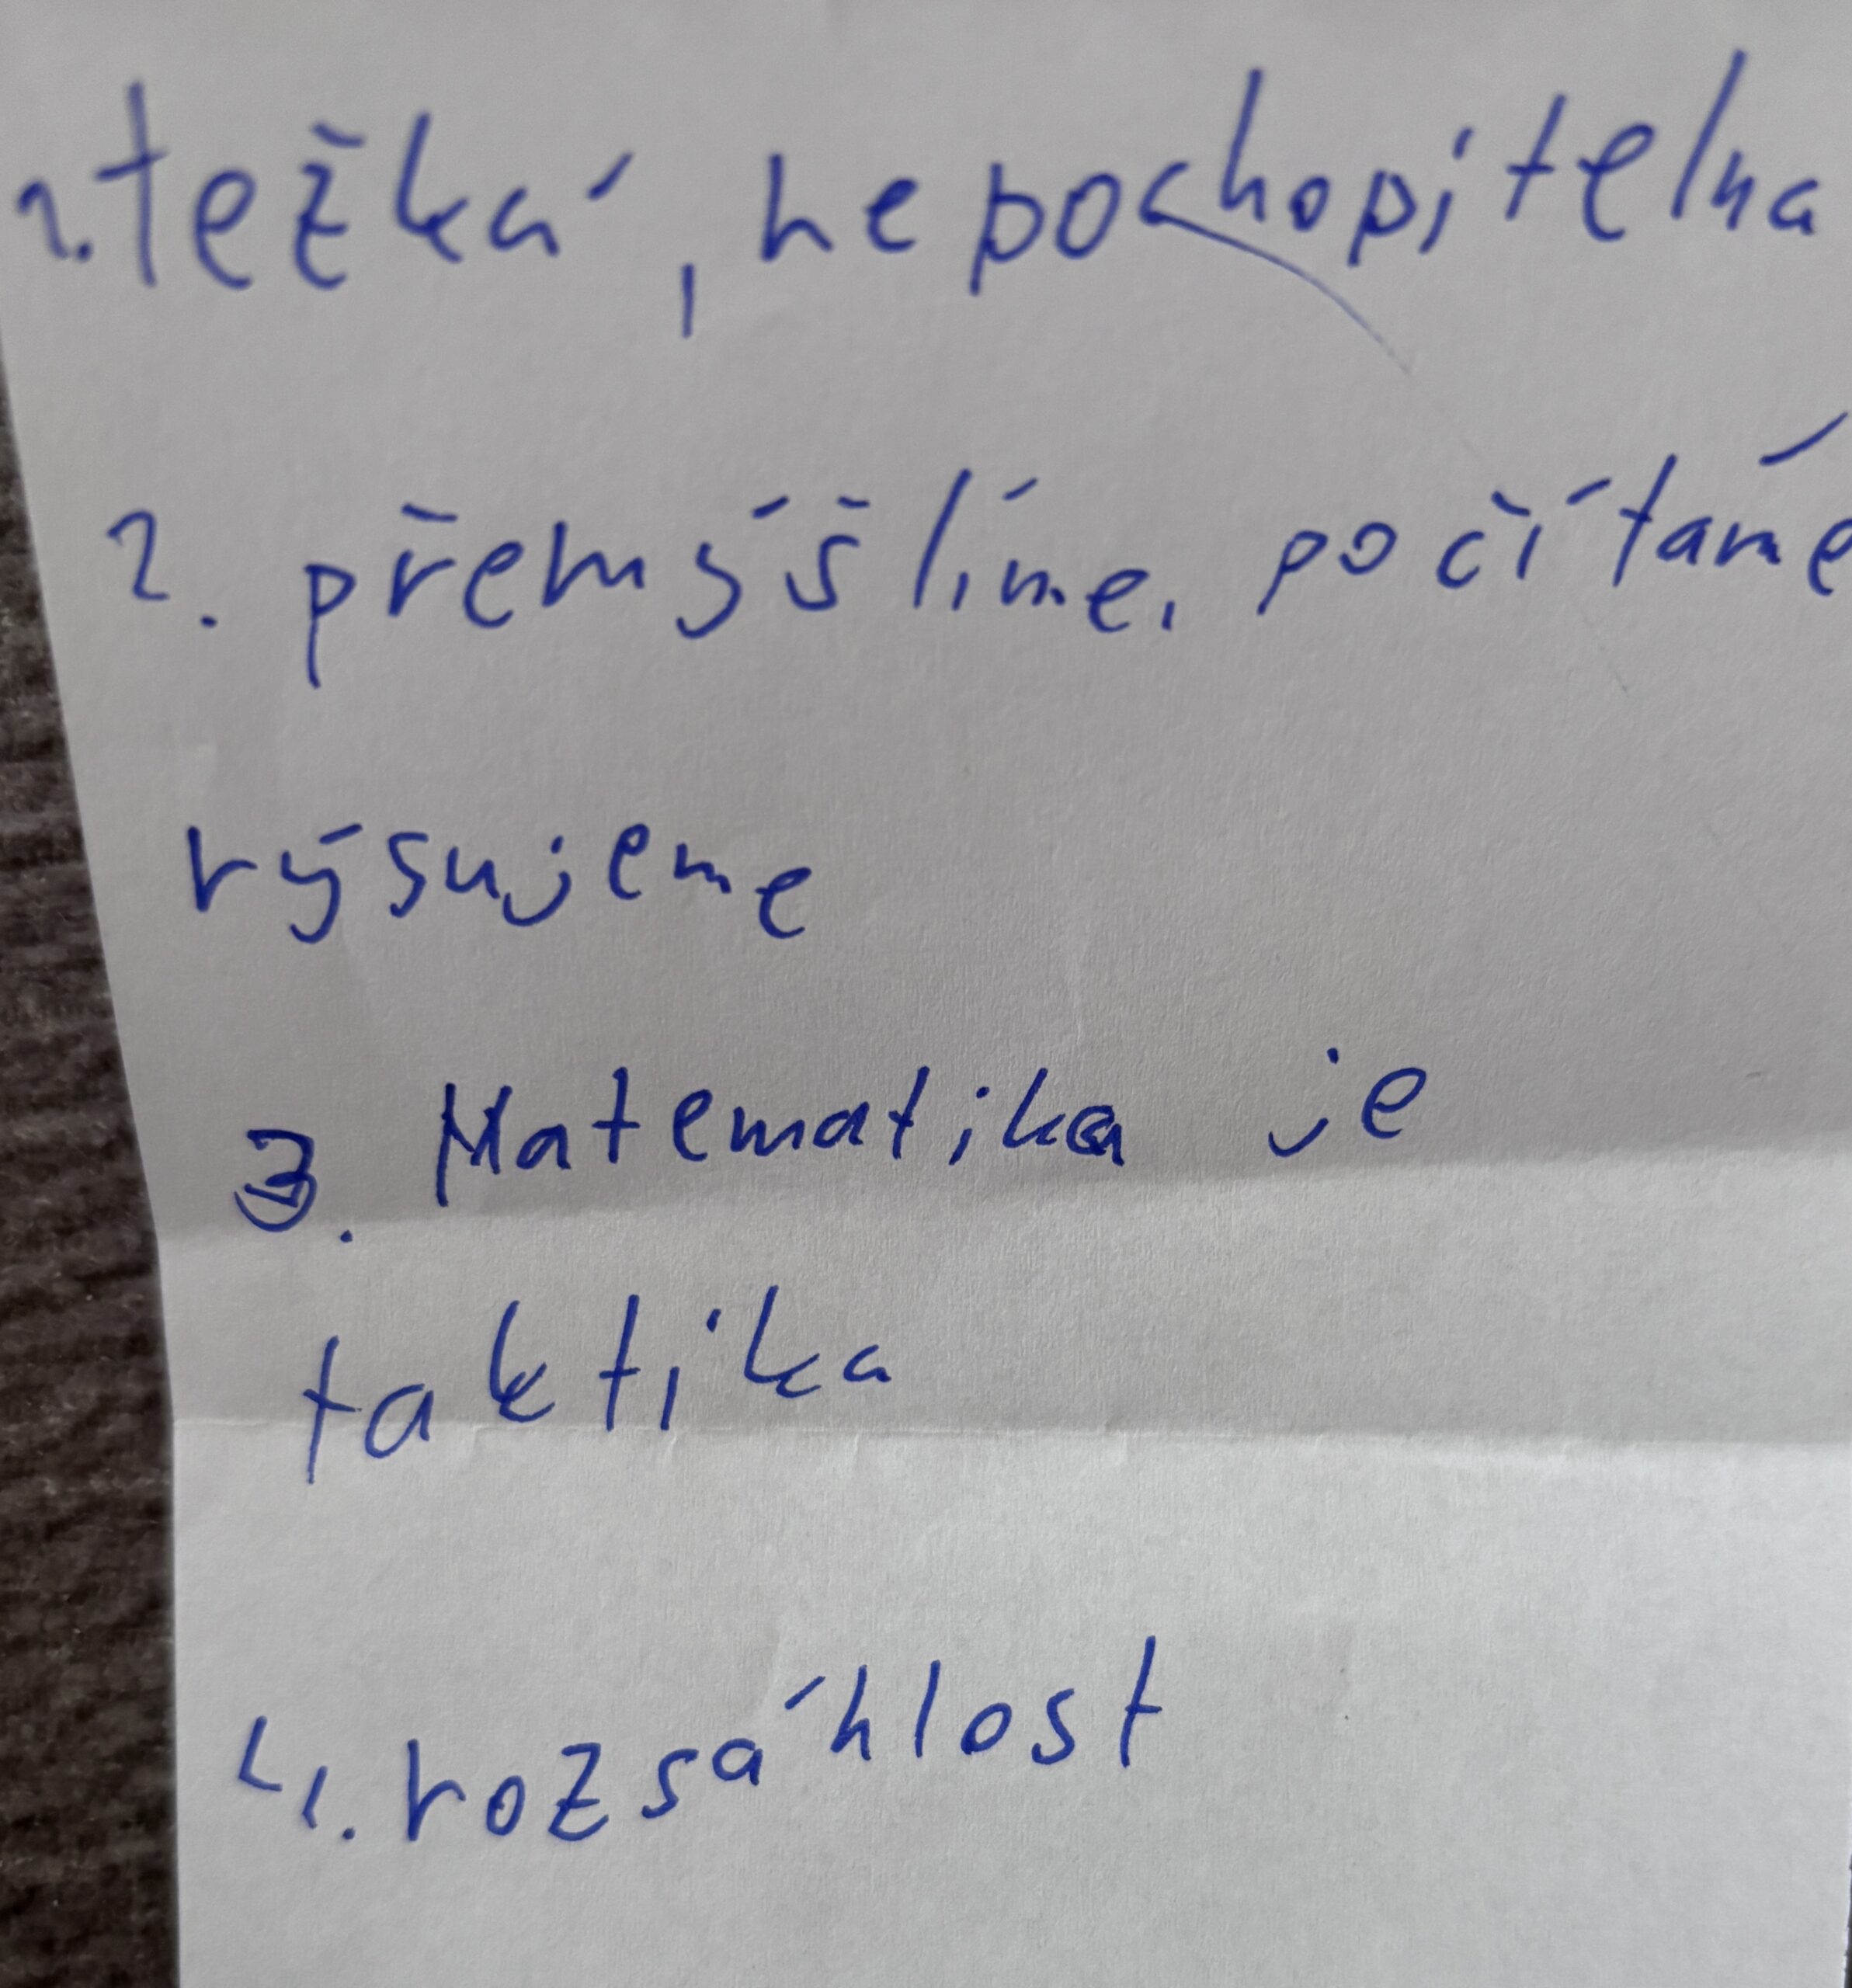 1. težká, nepochopitelna
2. přemýšlíme, počítáme
rýsujeme
3. Matematika je
taktika
4. rozsáhlost